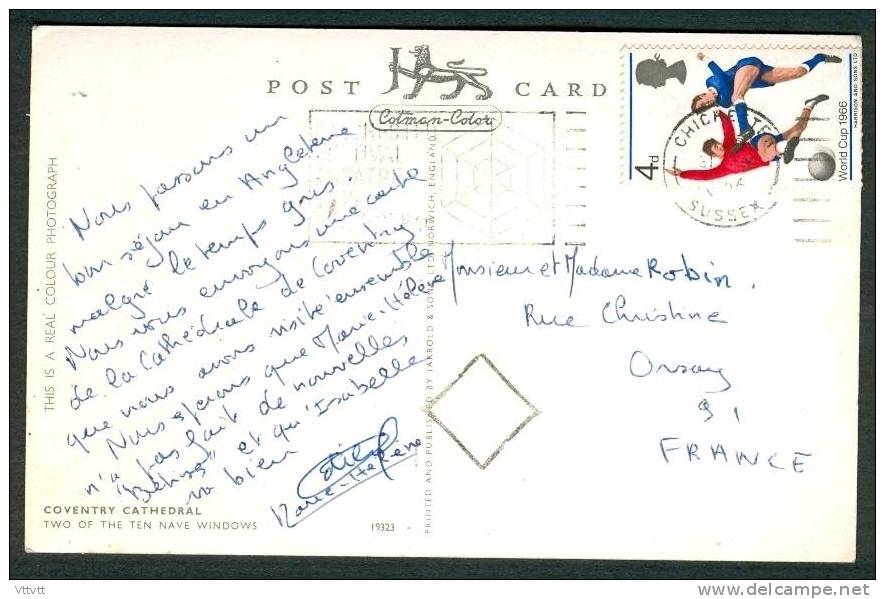 POST CARD
Cotman-Color
4d
World Cup 1966
HARRISON AND SONS LTD
SUSSEX
THIS IS A REAL COLOUR PHOTOGRAPH
Nous passons un
bon séjour en Angleterre
malgré le temps gris
Nous vous envoyons une carte
de la Cathédrale de Coventry
que nous avons visité ensemble
Nous espérons que Marie-Hélène
n'a pas fait de nouvelles
et qu'Isabelle
va bien
Marie-Hélène
Monsieur et Madame Robin.
Rue Christine
Orsay
91
FRANCE
COVENTRY CATHEDRAL
TWO OF THE TEN NAVE WINDOWS
19323
PRINTED AND PUBLISHED BY JARROLD & SONS LTD, NORWICH, ENGLAND
Vttvtt
www.delcampe.net